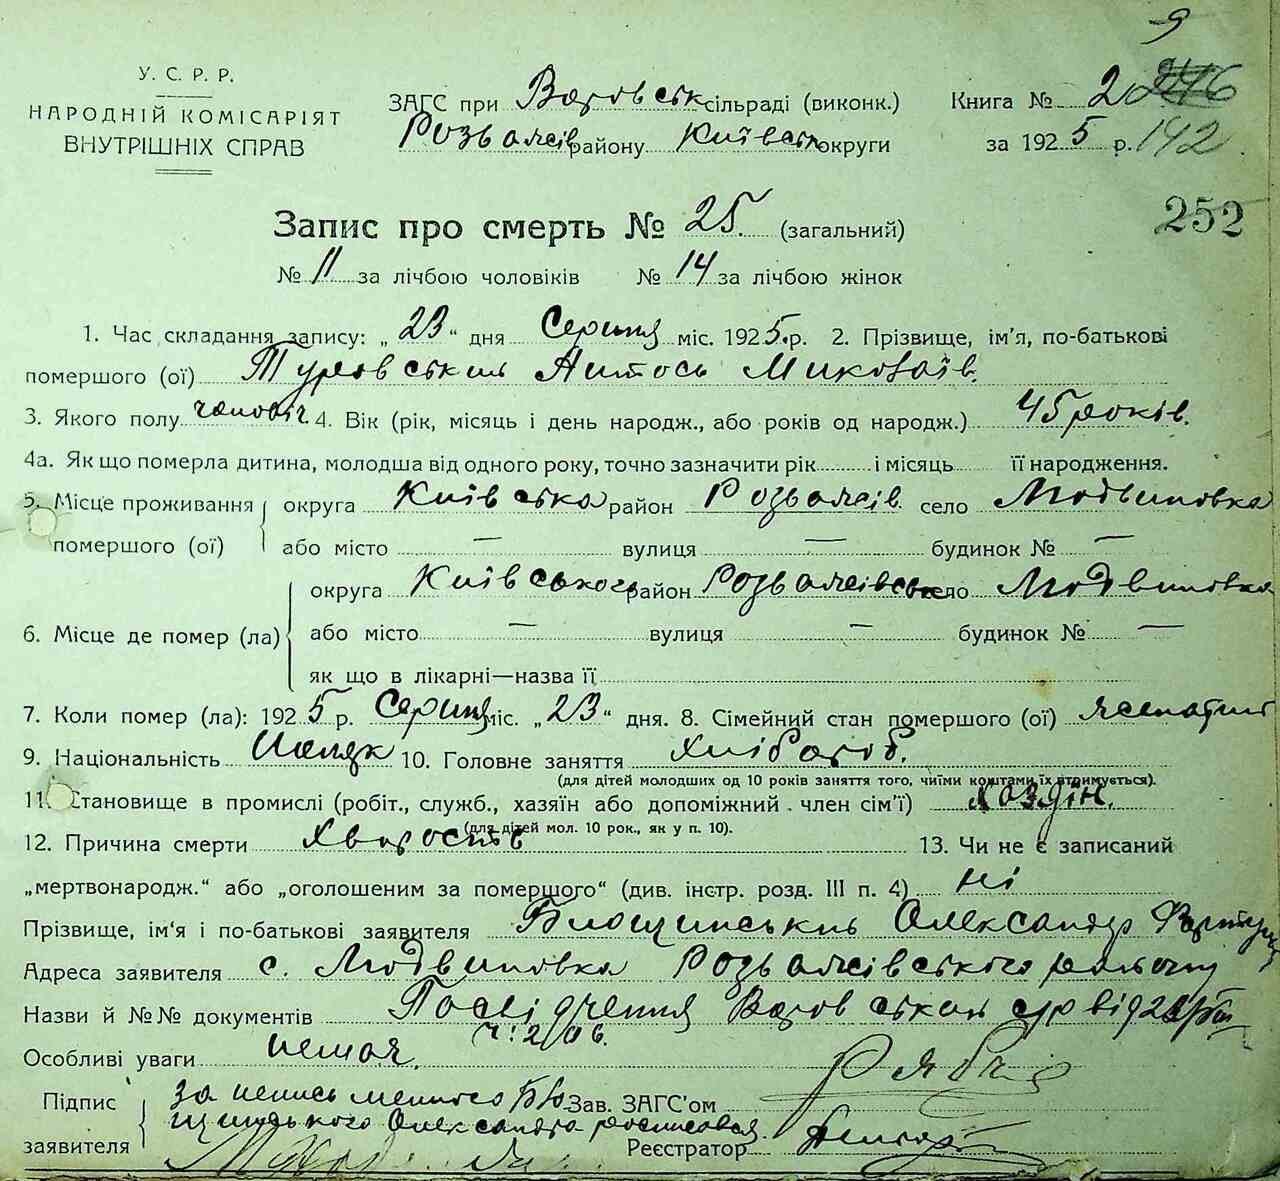 9
У. С. Р. Р.
НАРОДНІЙ КОМІСАРІЯТ
ВНУТРІШНІХ СПРАВ
ЗАГС при Воровськ сільраді (виконк.)
Розважів району Київськ округи
Книга № 2
за 1925 р. 142
252
Запис про смерть № 25. (загальний)
№ 11 за лічбою чоловіків № 14 за лічбою жінок
1. Час складання запису: „23“ дня Серпня міс. 1925 р. 2. Прізвище, ім'я, по-батькові
помершого (ої) Туровський Антось Миколаїв.
3. Якого полу чоловіч. 4. Вік (рік, місяць і день народж., або років од народж.) 45 років.
4а. Як що померла дитина, молодша від одного року, точно зазначити рік і місяць її народження.
5. Місце проживання помершого (ої) округа Київська район Розважів. село Людвиновка
або місто — вулиця — будинок № —
6. Місце де помер (ла) округа Київського район Розважівськ село Людвиновка
або місто — вулиця — будинок № —
як що в лікарні—назва її
7. Коли помер (ла): 1925 р. Серпня міс. „23“ дня. 8. Сімейний стан помершого (ої) женатий
9. Національність Поляк 10. Головне заняття хлібороб.
(для дітей молодших од 10 років заняття того, чиїми коштами їх втримується).
11. Становище в промислі (робіт., служб., хазяїн або допоміжний член сім'ї) хозяїн.
(для дітей мол. 10 рок., як у п. 10).
12. Причина смерти хворость 13. Чи не є записаний
„мертвонародж.“ або „оголошеним за помершого“ (див. інстр. розд. III п. 4) ні
Прізвище, ім'я і по-батькові заявителя Блощинський Олександр
Адреса заявителя с. Людвиновка Розважівського району
Назви й №№ документів Посвідчення Воровськой с/р від
ч: 206.
Особливі уваги немає.
Підпис заявителя за неписьменного Бло-
щинського Олександра росписовся
Зав. ЗАГС'ом
Реєстратор